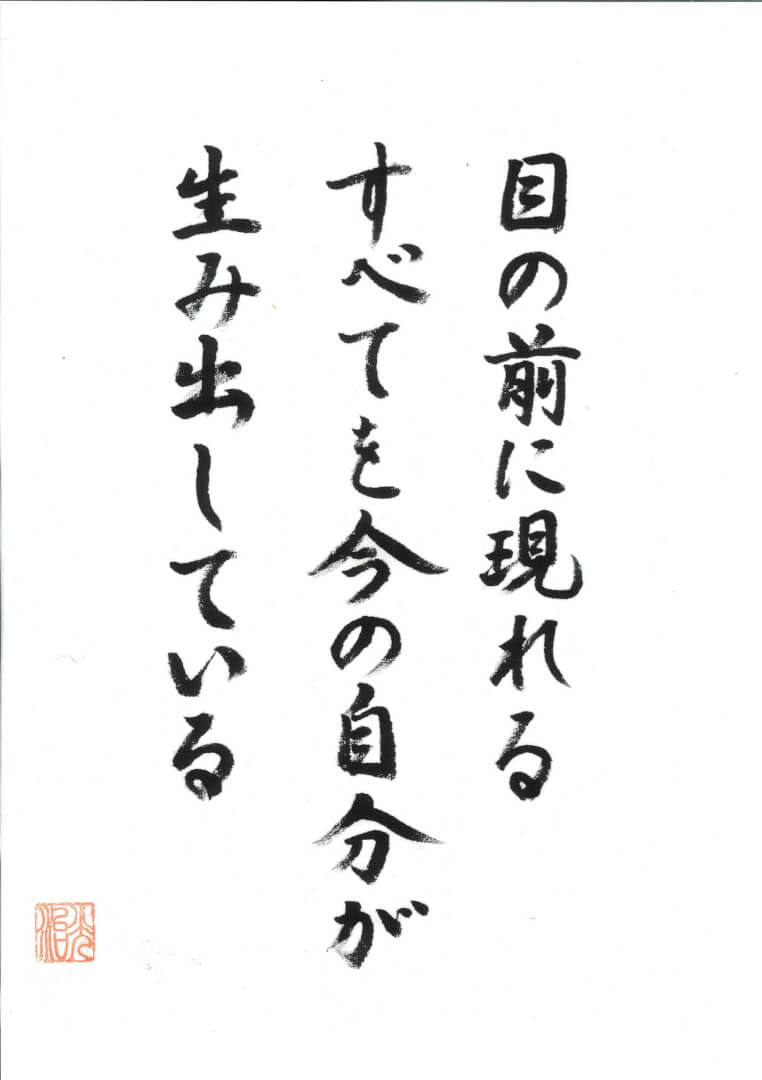 目の前に現れる
すべてを今の自分が
生み出している